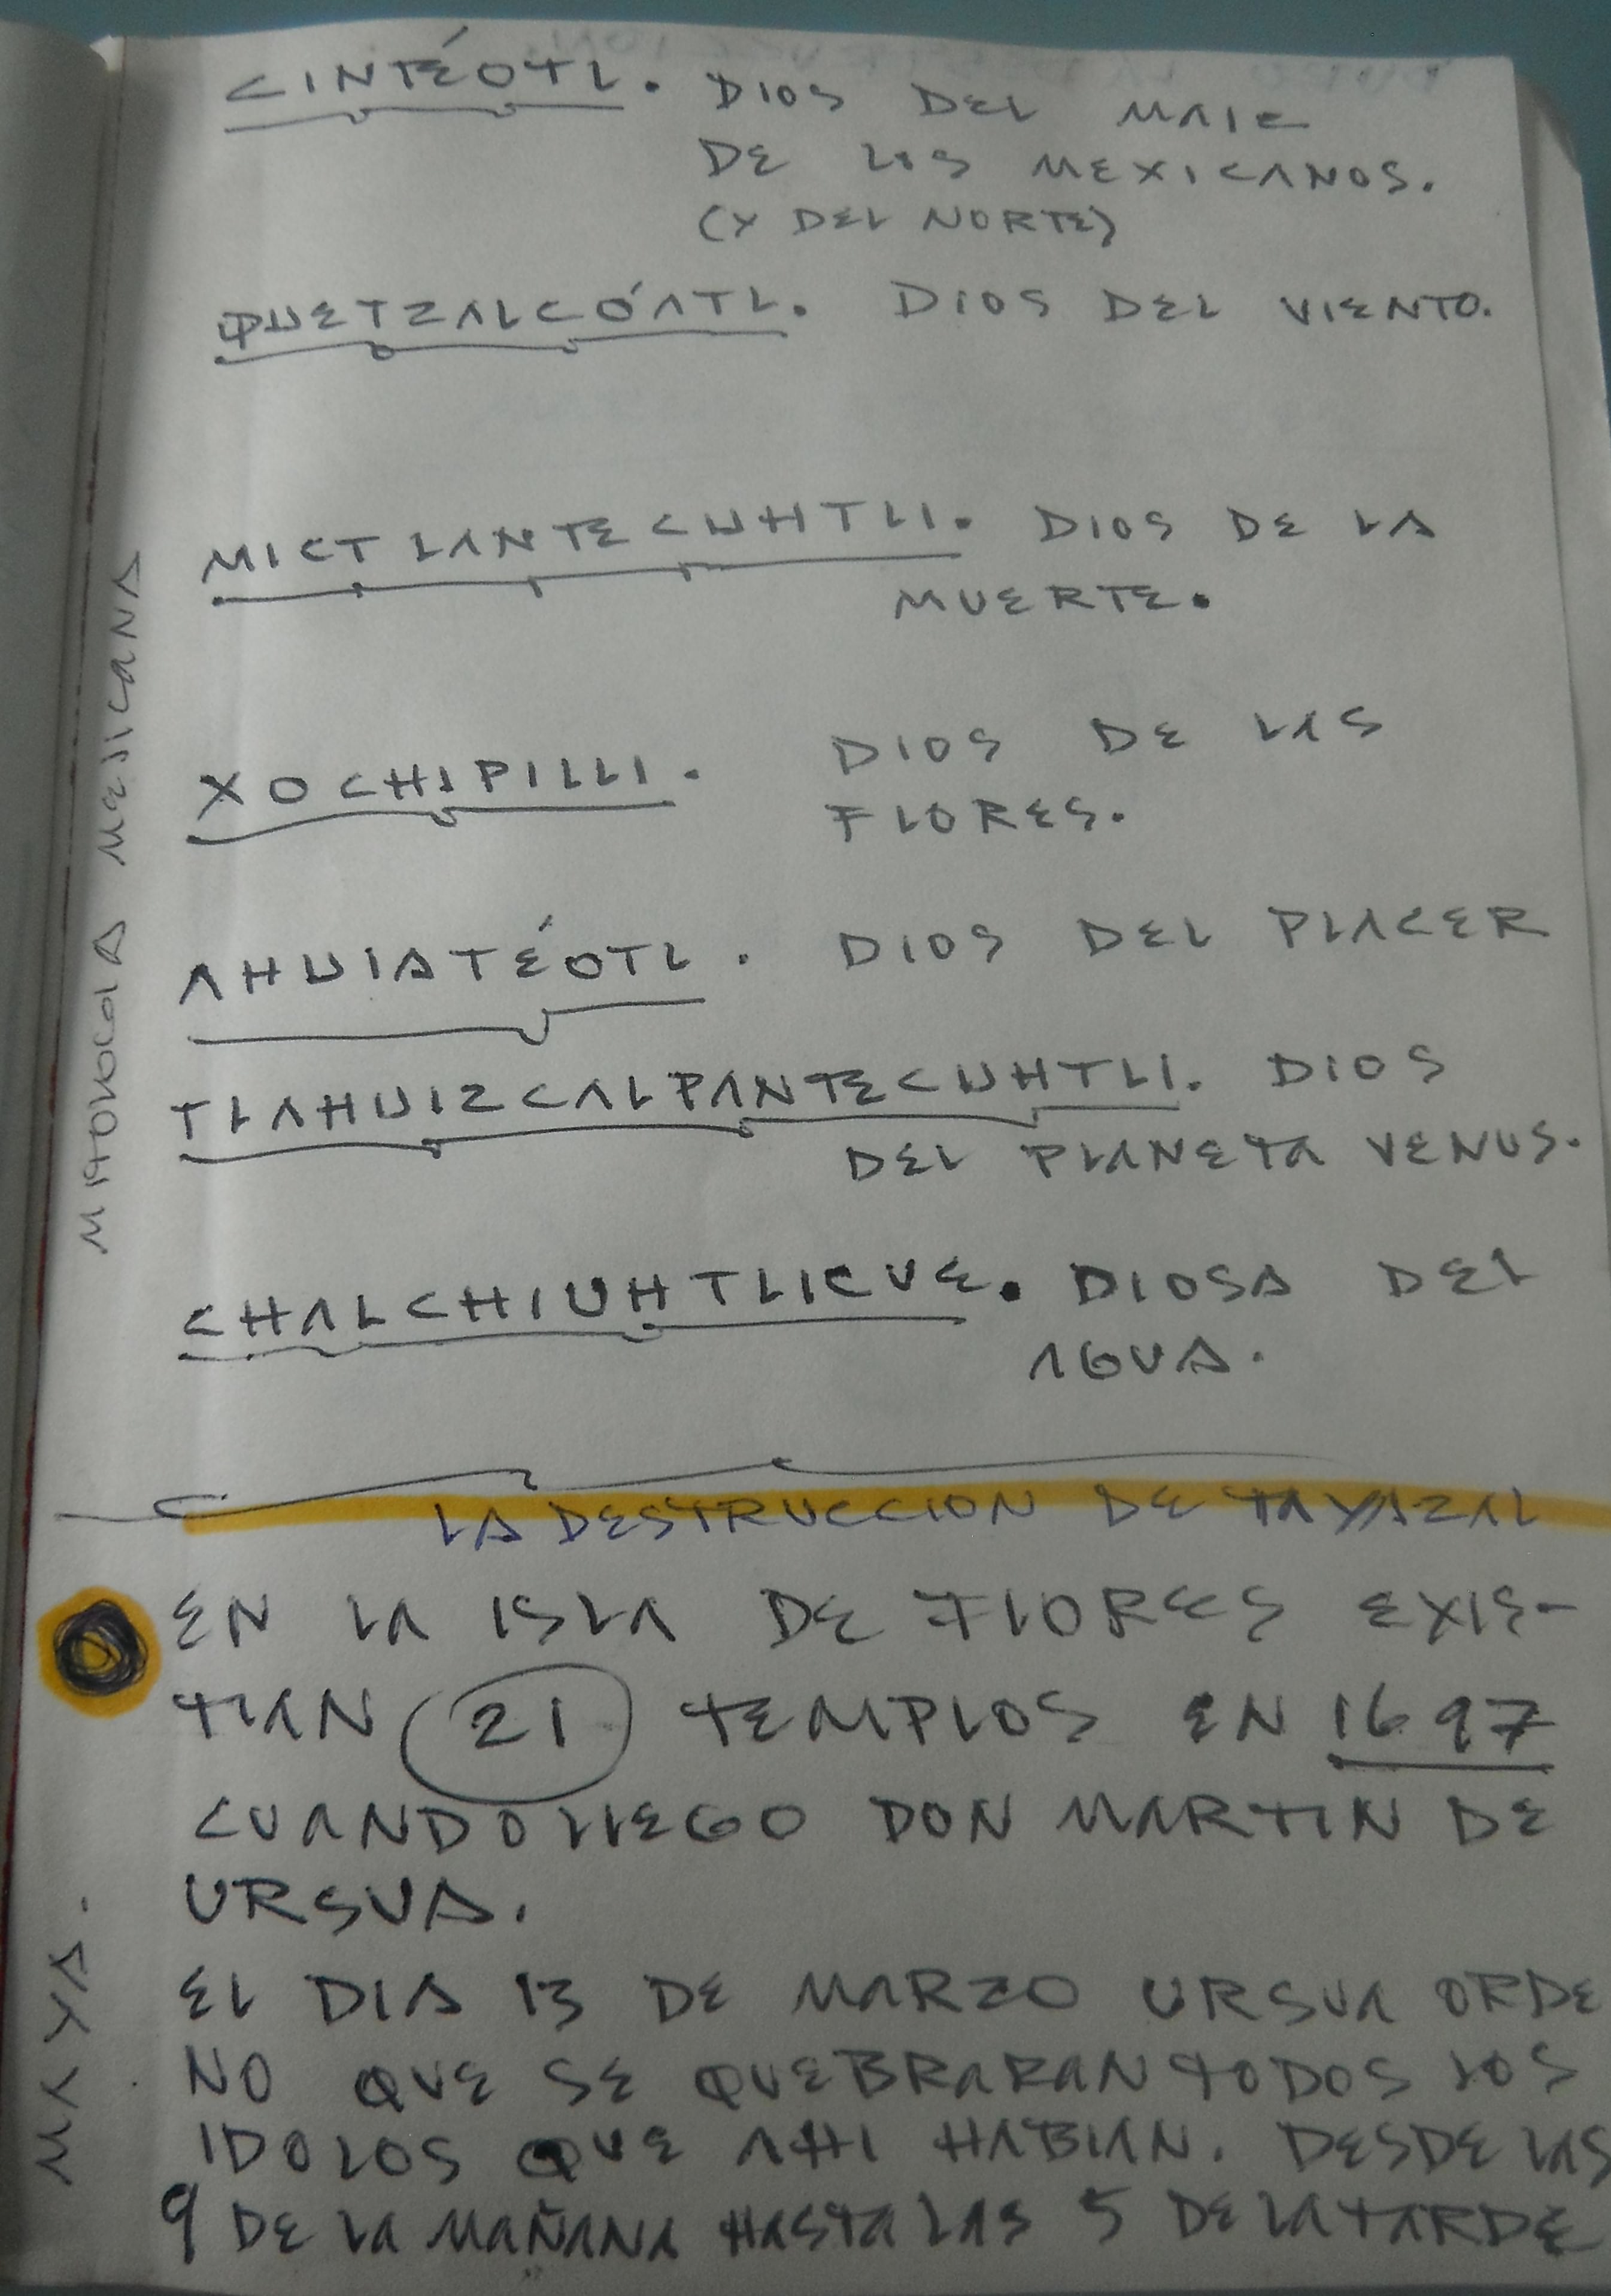 CINTÉOTL. DIOS DEL MAIZ
DE LOS MEXICANOS.
(Y DEL NORTE)
QUETZALCÓATL. DIOS DEL VIENTO.
MICTLANTECUHTLI. DIOS DE LA
MUERTE.
XOCHIPILLI. DIOS DE LAS
FLORES.
AHUIATÉOTL. DIOS DEL PLACER
TLAHUIZCALPANTECUHTLI. DIOS
DEL PLANETA VENUS.
CHALCHIUHTLICUE. DIOSA DEL
AGUA.
MITOLOGIA MEJICANA
LA DESTRUCCION DE TAYAZAL
EN LA ISLA DE FLORES EXIS-
TIAN 21 TEMPLOS EN 1697
CUANDO LLEGO DON MARTIN DE
URSUA.
EL DIA 13 DE MARZO URSUA ORDE
NO QUE SE QUEBRARAN TODOS LOS
IDOLOS QUE AHI HABIAN. DESDE LAS
9 DE LA MAÑANA HASTA LAS 5 DE LA TARDE
MAYA.